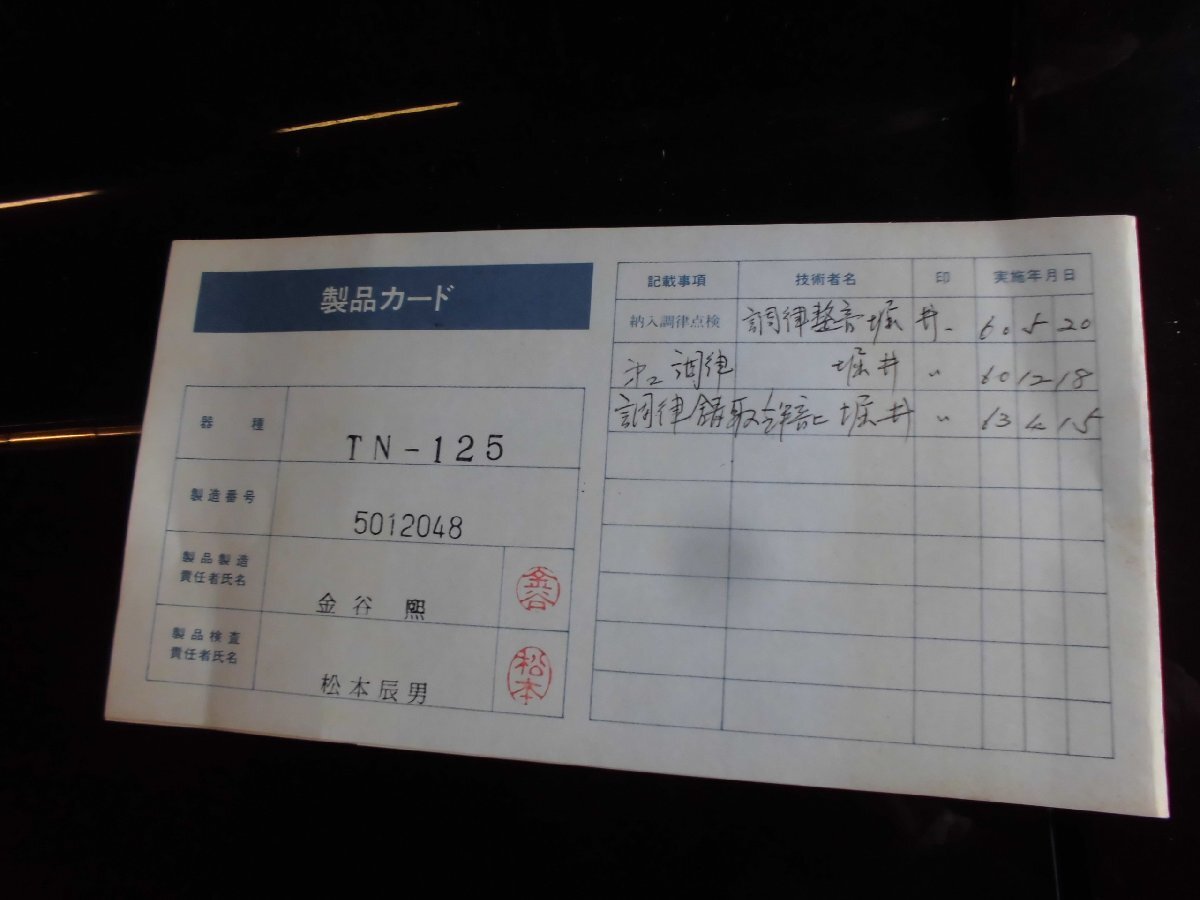 製品カード
器種
TN-125
製造番号
5012048
製品製造
責任者氏名
金谷 熙
金谷
製品検査
責任者氏名
松本辰男
松本
記載事項 技術者名 印 実施年月日
納入調律点検 調律整音 堀井 60 5 20
調律 堀井 〃 60 12 18
調律 堀井 〃 63 4 15